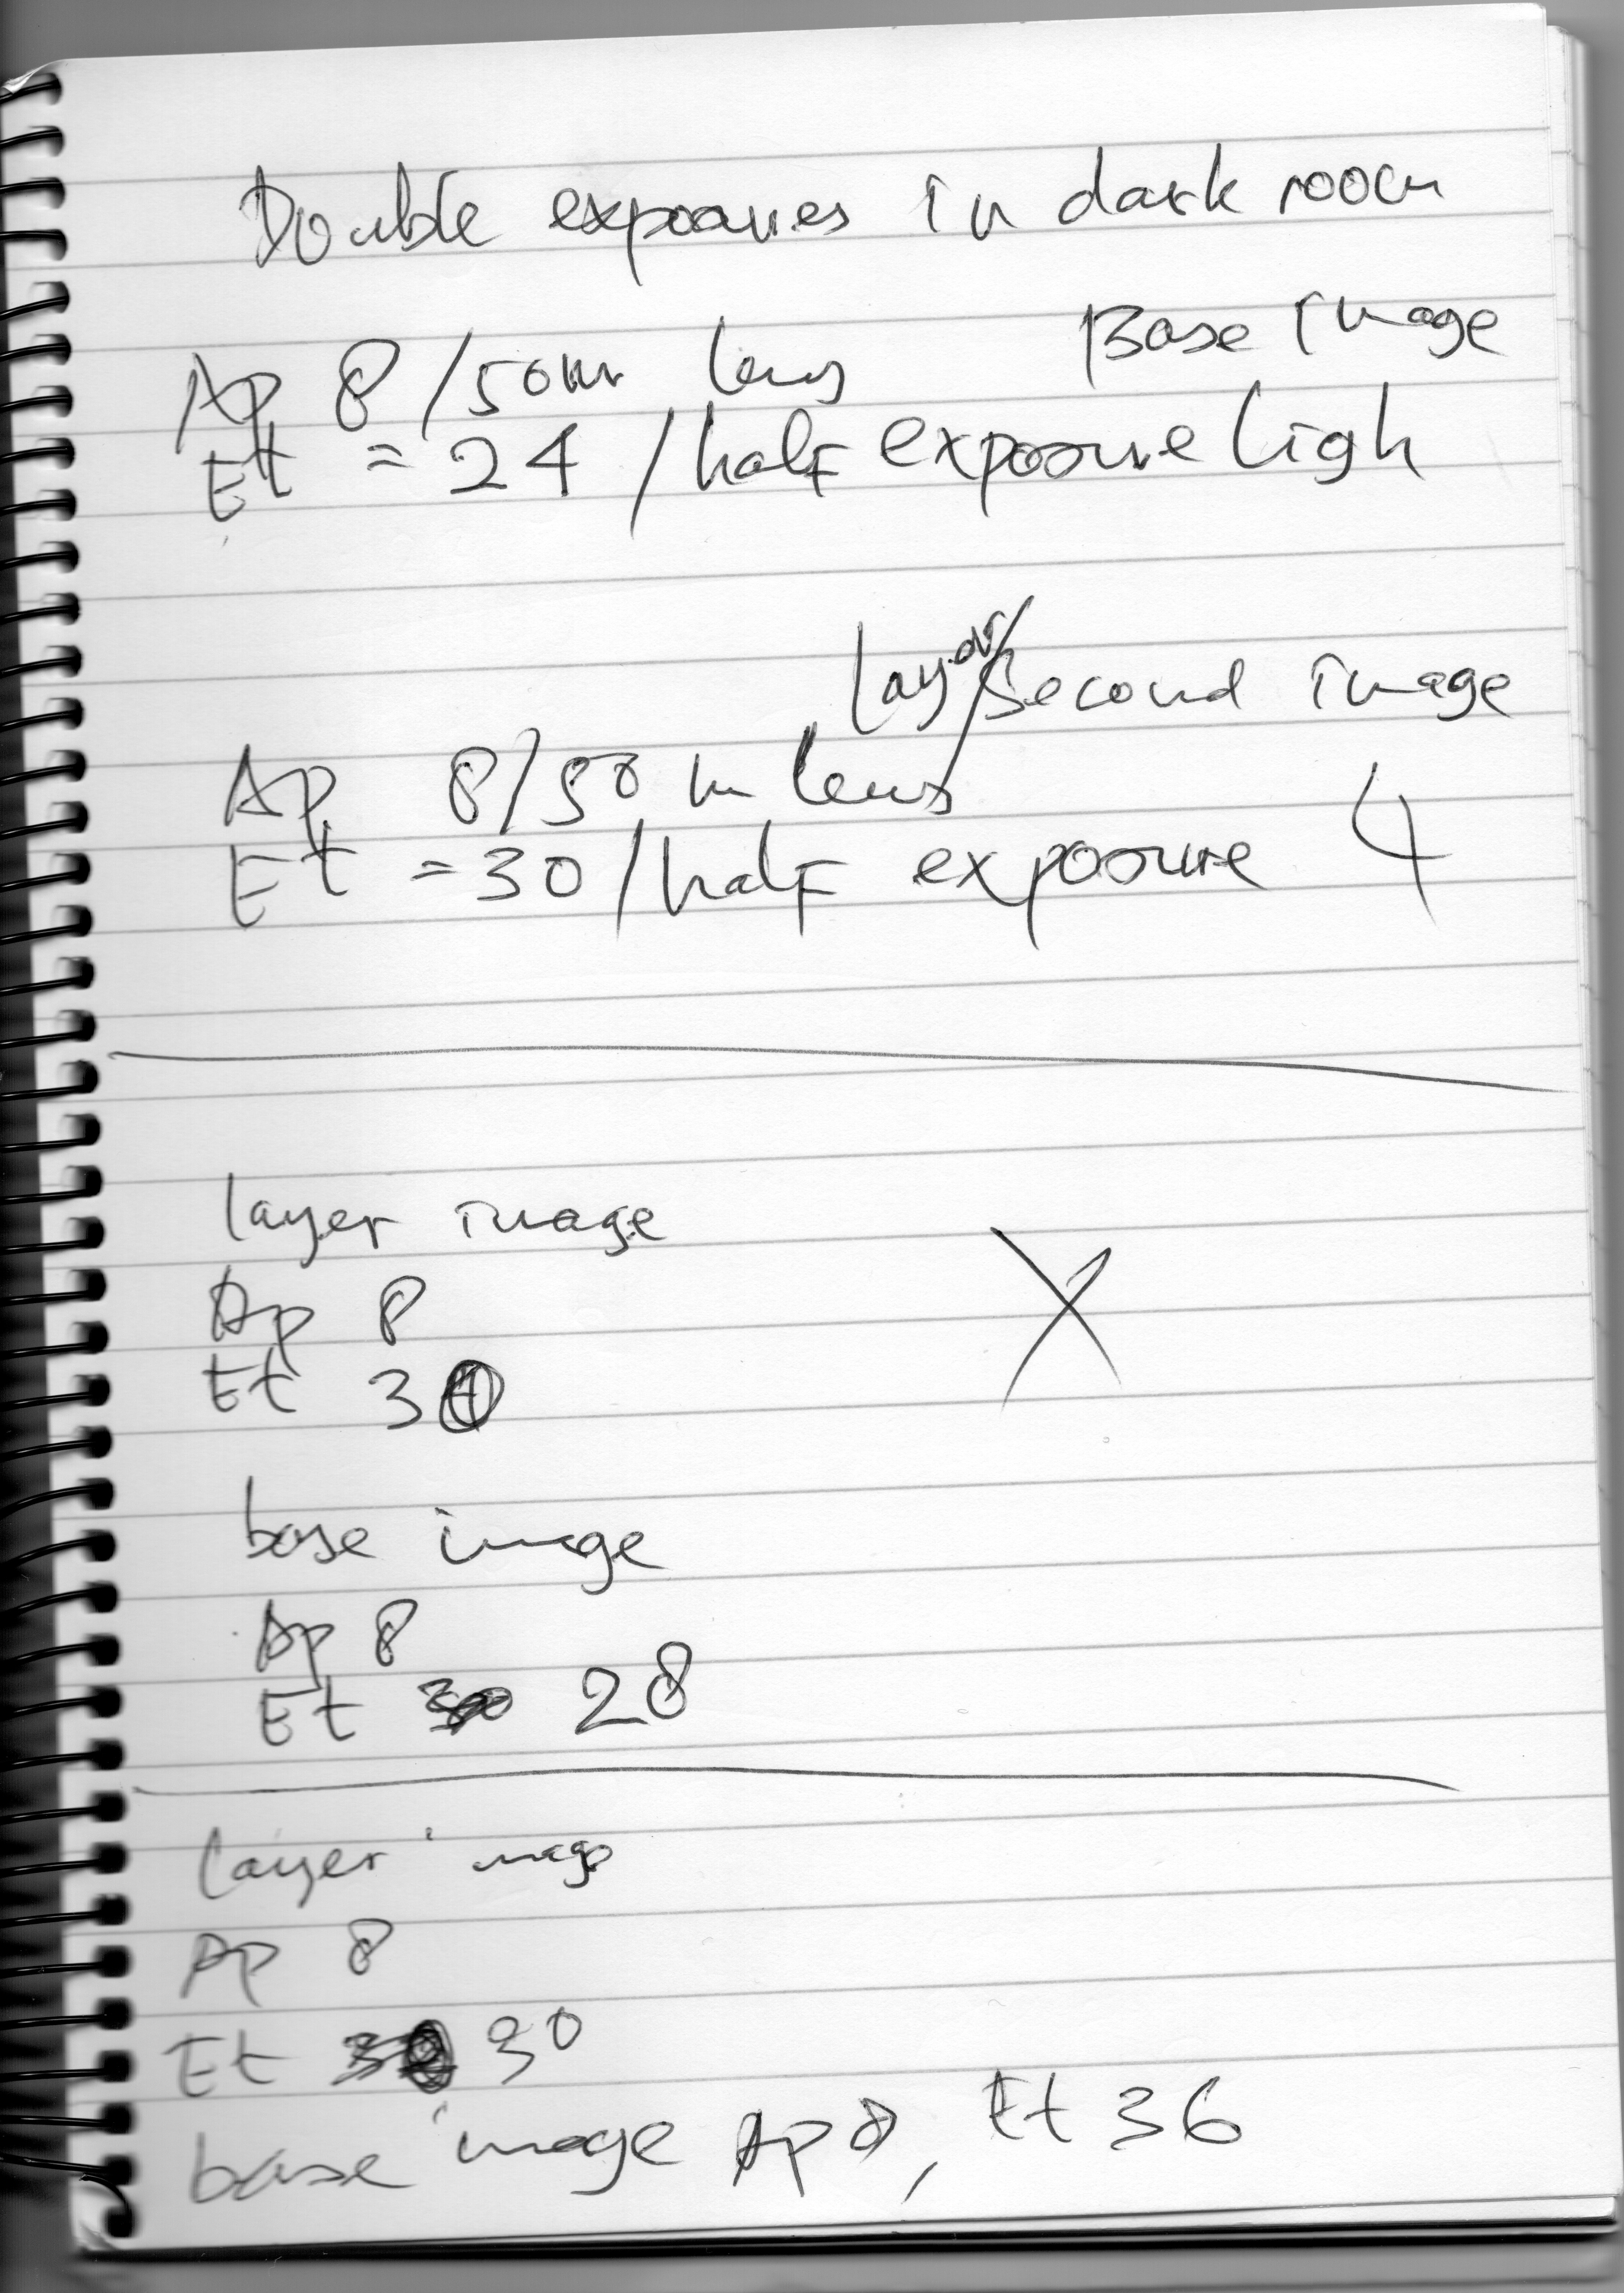 Double exposures in dark room
Base image
Ap 8/50m lens
Et = 24 /half exposure ligh
layer/second image
Ap 8/50 m lens
Et = 30/half exposure 4
layer image
Ap 8 X
Et 30
base image
Ap 8
Et 30 28
layer image
Ap 8
Et 30
base image Ap 8, Et 36